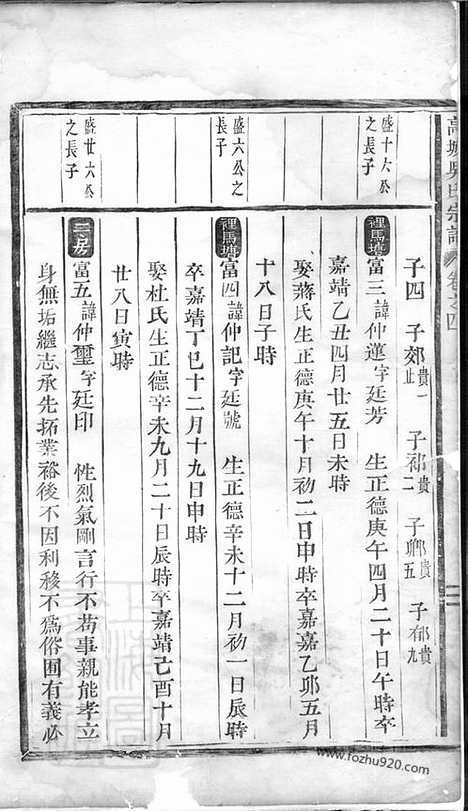 子四 子郊貴一止 子祁貴二 子鄉貴五 子郁貴九
盛十六公之長子
裡馬塘 富三諱仲蓮字廷芳 生正德庚午四月二十日午時卒
嘉靖乙丑四月廿五日未時
娶蔣氏生正德庚午十月初二日申時卒嘉嘉乙邜五月
十八日子時
盛六公之長子
裡馬塘 富四諱仲記字廷號 生正德辛未十二月初一日辰時
卒嘉靖丁巳十二月十九日申時
娶杜氏生正德辛未九月二十日辰時卒嘉靖己酉十月
廿八日寅時
盛廿六公之長子
富五諱仲璽字廷印 性烈氣剛言行不苟事親能孝立
身無垢繼志承先拓業裕後不因利移不爲俗囿有義必
www.fozhu920.com